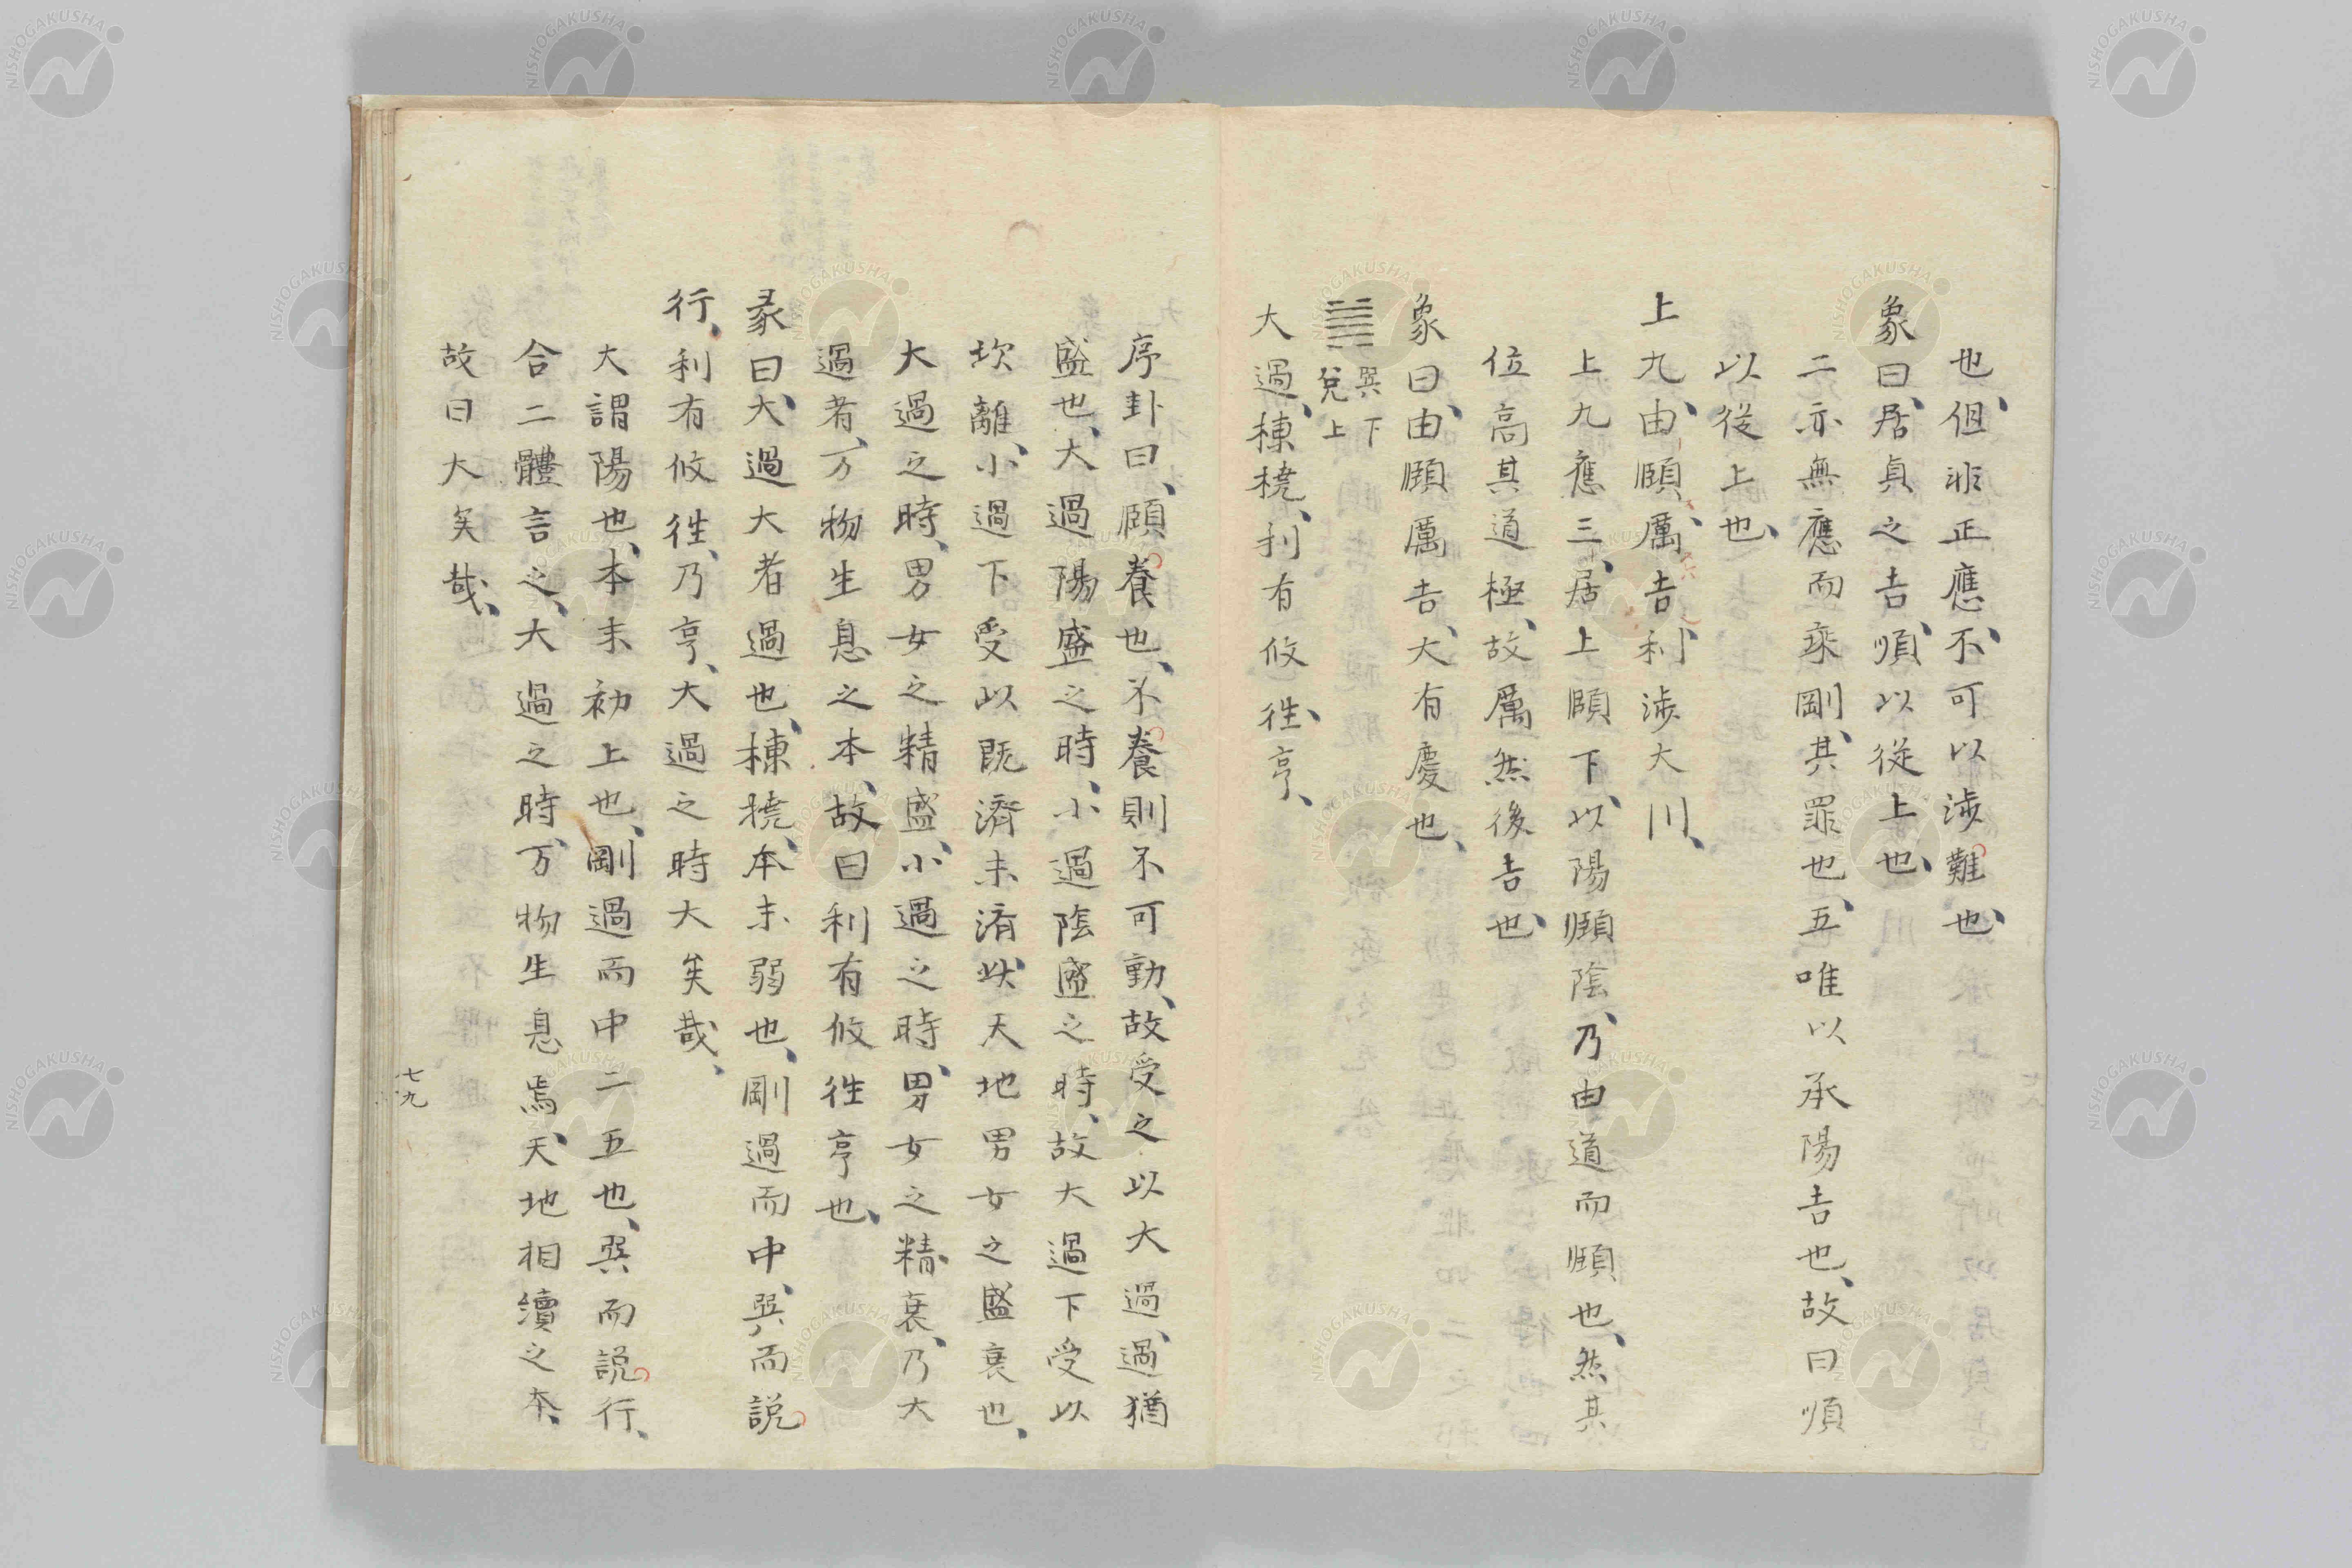 也、但非正應、不可以涉難也、
象曰、居貞之吉、順以從上也、
二亦無應而乘剛、其罪也、五唯以承陽吉也、故曰順
以從上也、
上九、由頤、厲吉、利涉大川、
上九應三、居上頤下、以陽頤陰、乃由道而頤也、然其
位高其道極、故厲然後吉也、
象曰、由頤厲吉、大有慶也、
䷛巽下兌上
大過、棟橈、利有攸往、亨、
序卦曰、頤養也、不養則不可動、故受之以大過、過猶
盛也、大過陽盛之時、小過陰盛之時、故大過下受以
坎離、小過下受以既濟未濟、以天地男女之盛衰也、
大過之時、男女之精盛、小過之時、男女之精衰、乃大
過者、万物生息之本、故曰利有攸往亨也、
彖曰、大過大者過也、棟橈、本末弱也、剛過而中、巽而説
行、利有攸往、乃亨、大過之時大矣哉、
大謂陽也、本末初上也、剛過而中二五也、巽而説行、
合二體言之、大過之時、万物生息焉、天地相續之本、
故曰大矣哉、
七九
NISHOGAKUSHA